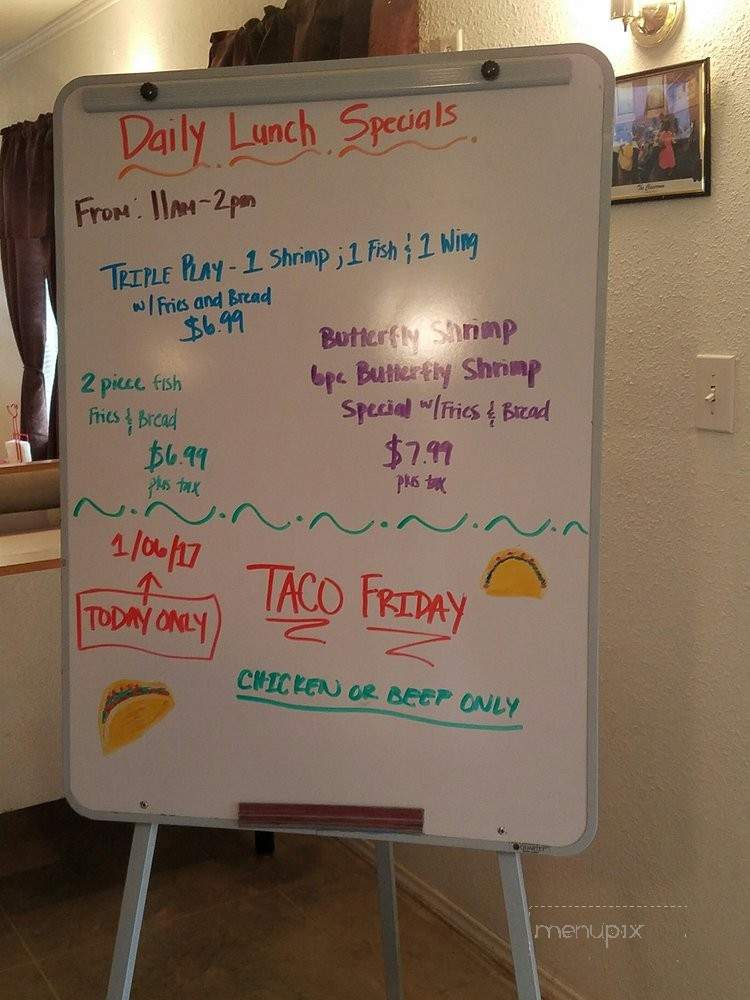 Daily Lunch Specials
From: 11am-2pm
Triple Play - 1 Shrimp ; 1 Fish & 1 Wing
w/Fries and Bread
$6.99
Butterfly Shrimp
6pc Butterfly Shrimp
Special w/Fries & Bread
$7.99
plus tax
2 piece fish
Fries & Bread
$6.99
plus tax
1/06/17
TODAY ONLY
TACO FRIDAY
CHICKEN OR BEEF ONLY
QUARTET
menupix